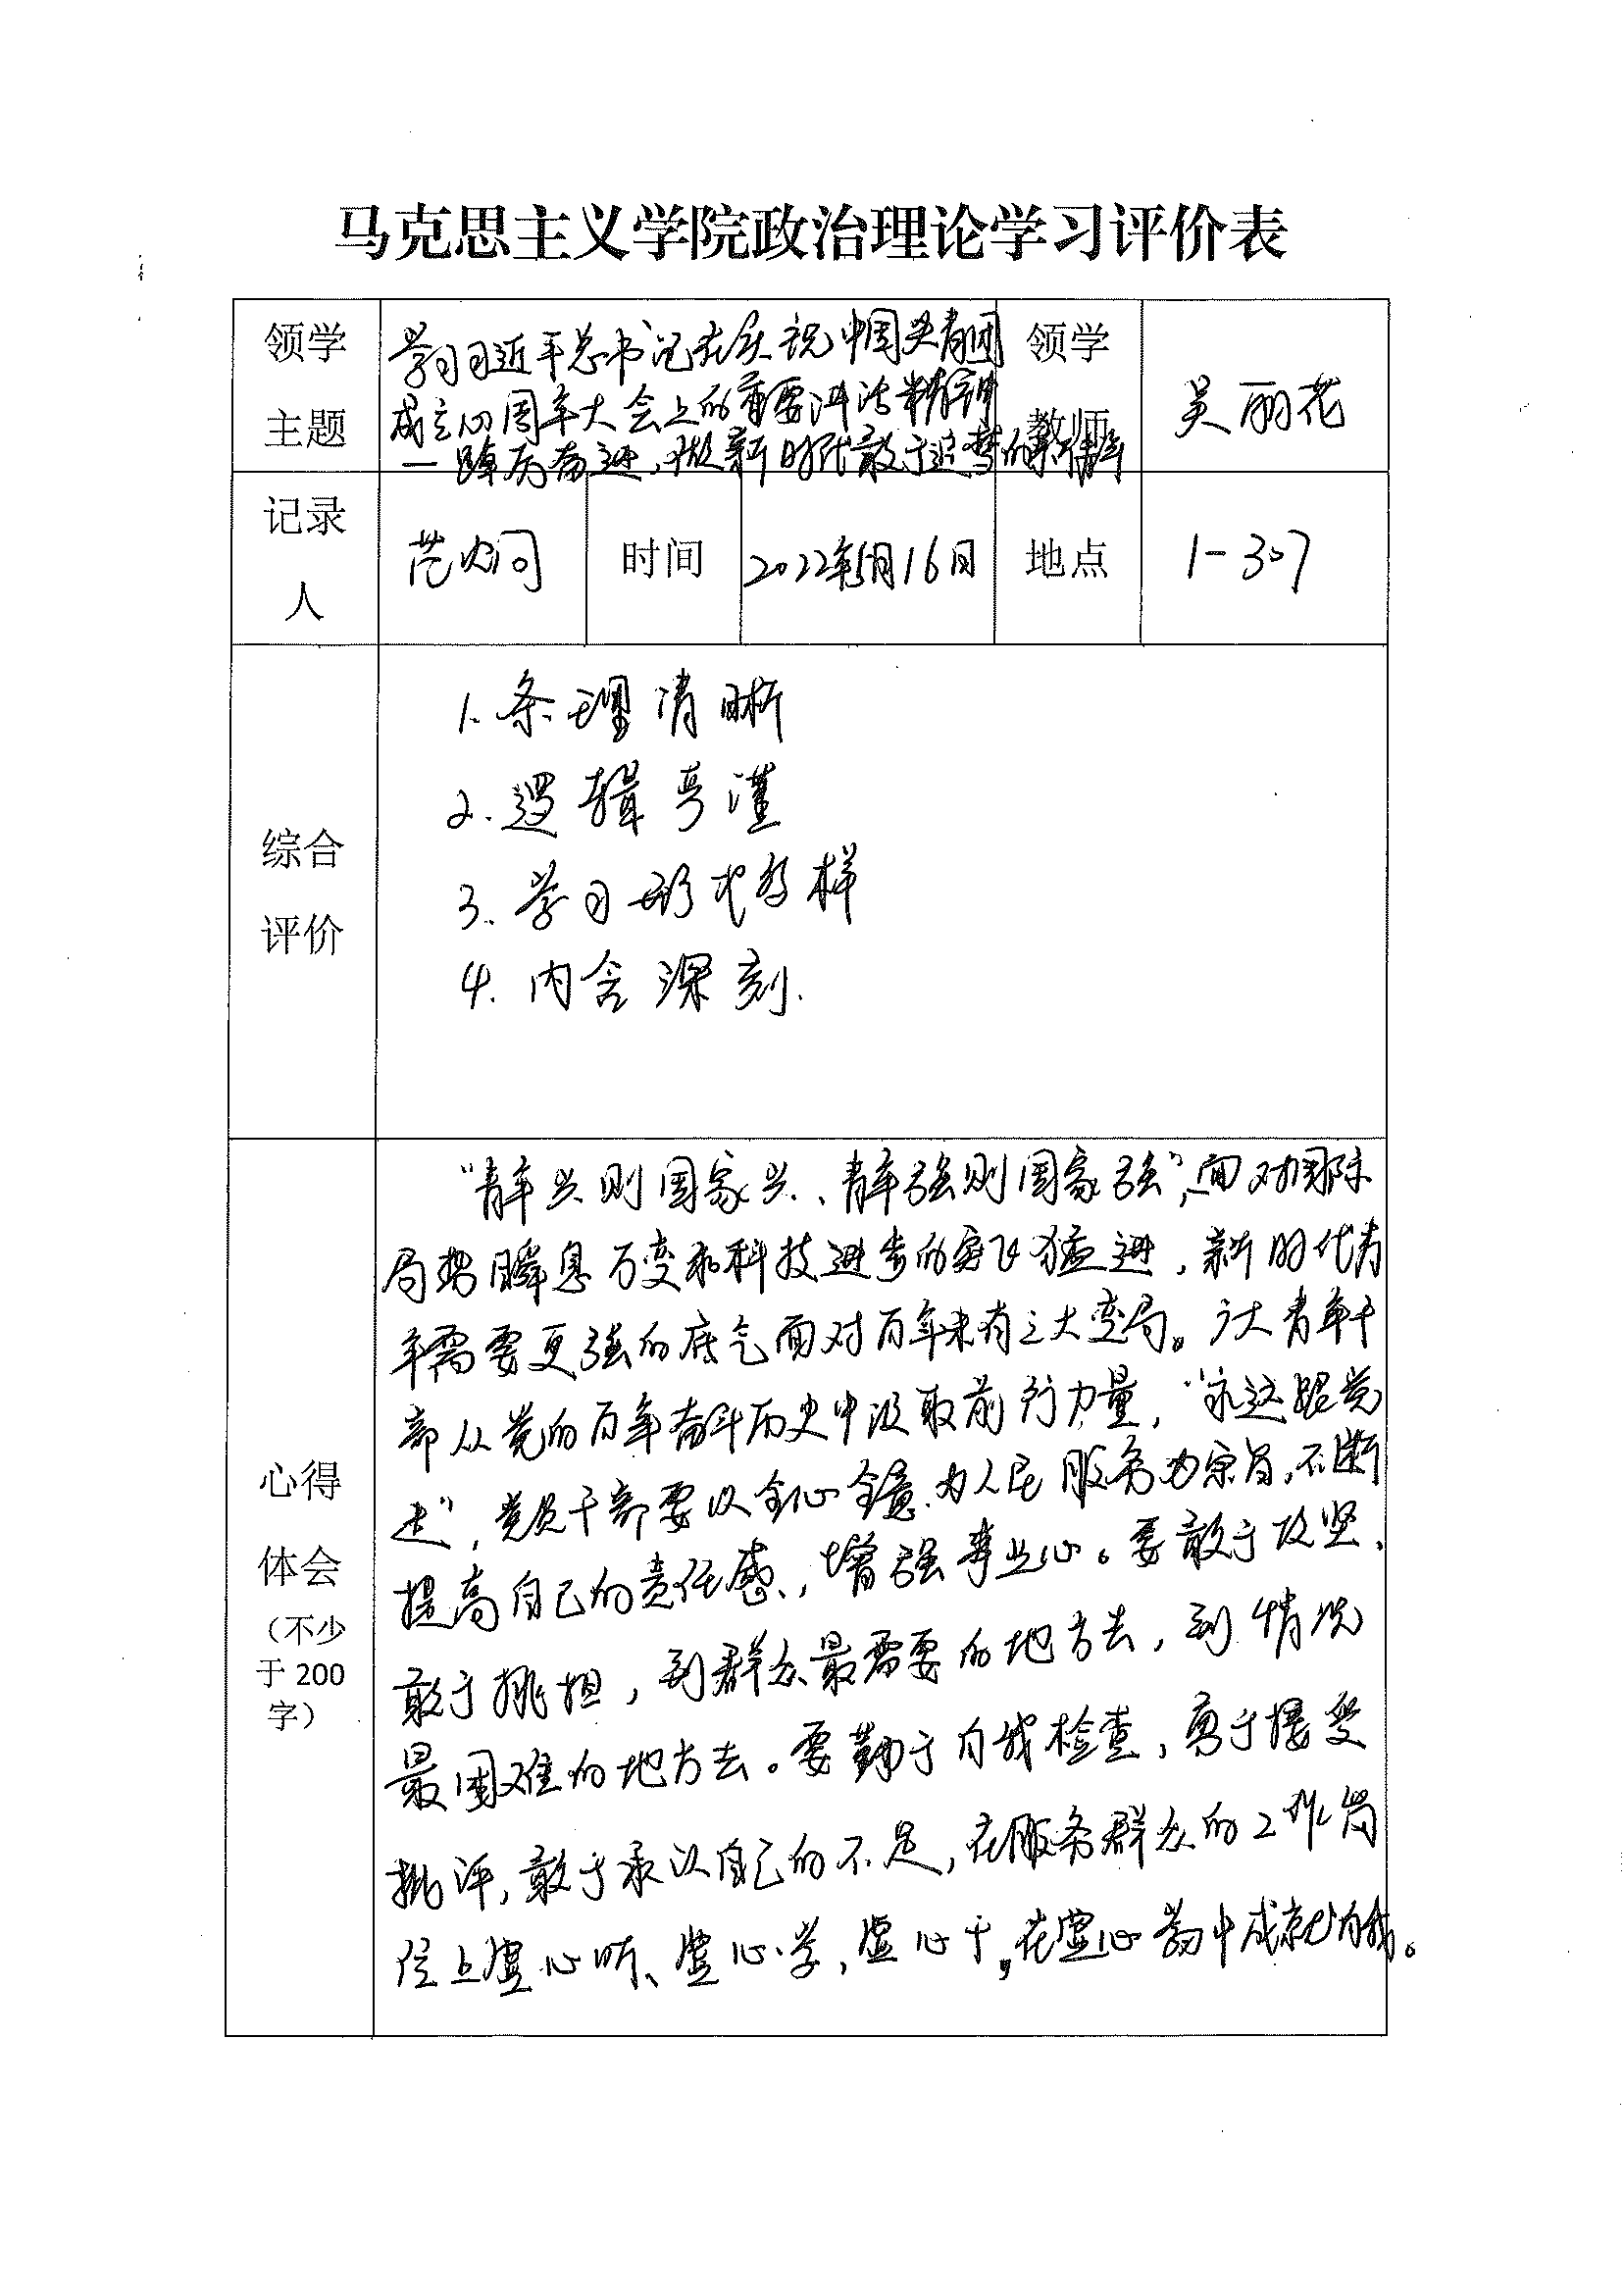 马克思主义学院政治理论学习评价表
领学主题
学习习近平总书记在庆祝中国共青团
成立100周年大会上的重要讲话精神
—踔厉奋进,做新时代敢于追梦的新青年
领学教师
吴丽花
记录人
范 问
时间
2022年5月16日
地点
1-307
综合评价
1.条理清晰
2.逻辑严谨
3.学习形式多样
4.内含深刻.
心得体会
(不少于200字)
“青年兴则国家兴、青年强则国家强”,面对国际
局势瞬息万变和科技进步的突飞猛进,新时代青
年需要更强的底气面对百年未有之大变局。广大青年干
部从党的百年奋斗历史中汲取前行力量,“永远跟党
走”,党员干部要以全心全意为人民服务为宗旨,不断
提高自己的责任感、,增强事业心。要敢于攻坚、
敢于挑担,到群众最需要的地方去,到情况
最困难的地方去。要勤于自我检查,勇于接受
批评,敢于承认自己的不足,在服务群众的工作岗
位上虚心听、虚心学,虚心干,在虚心 中成就自我。